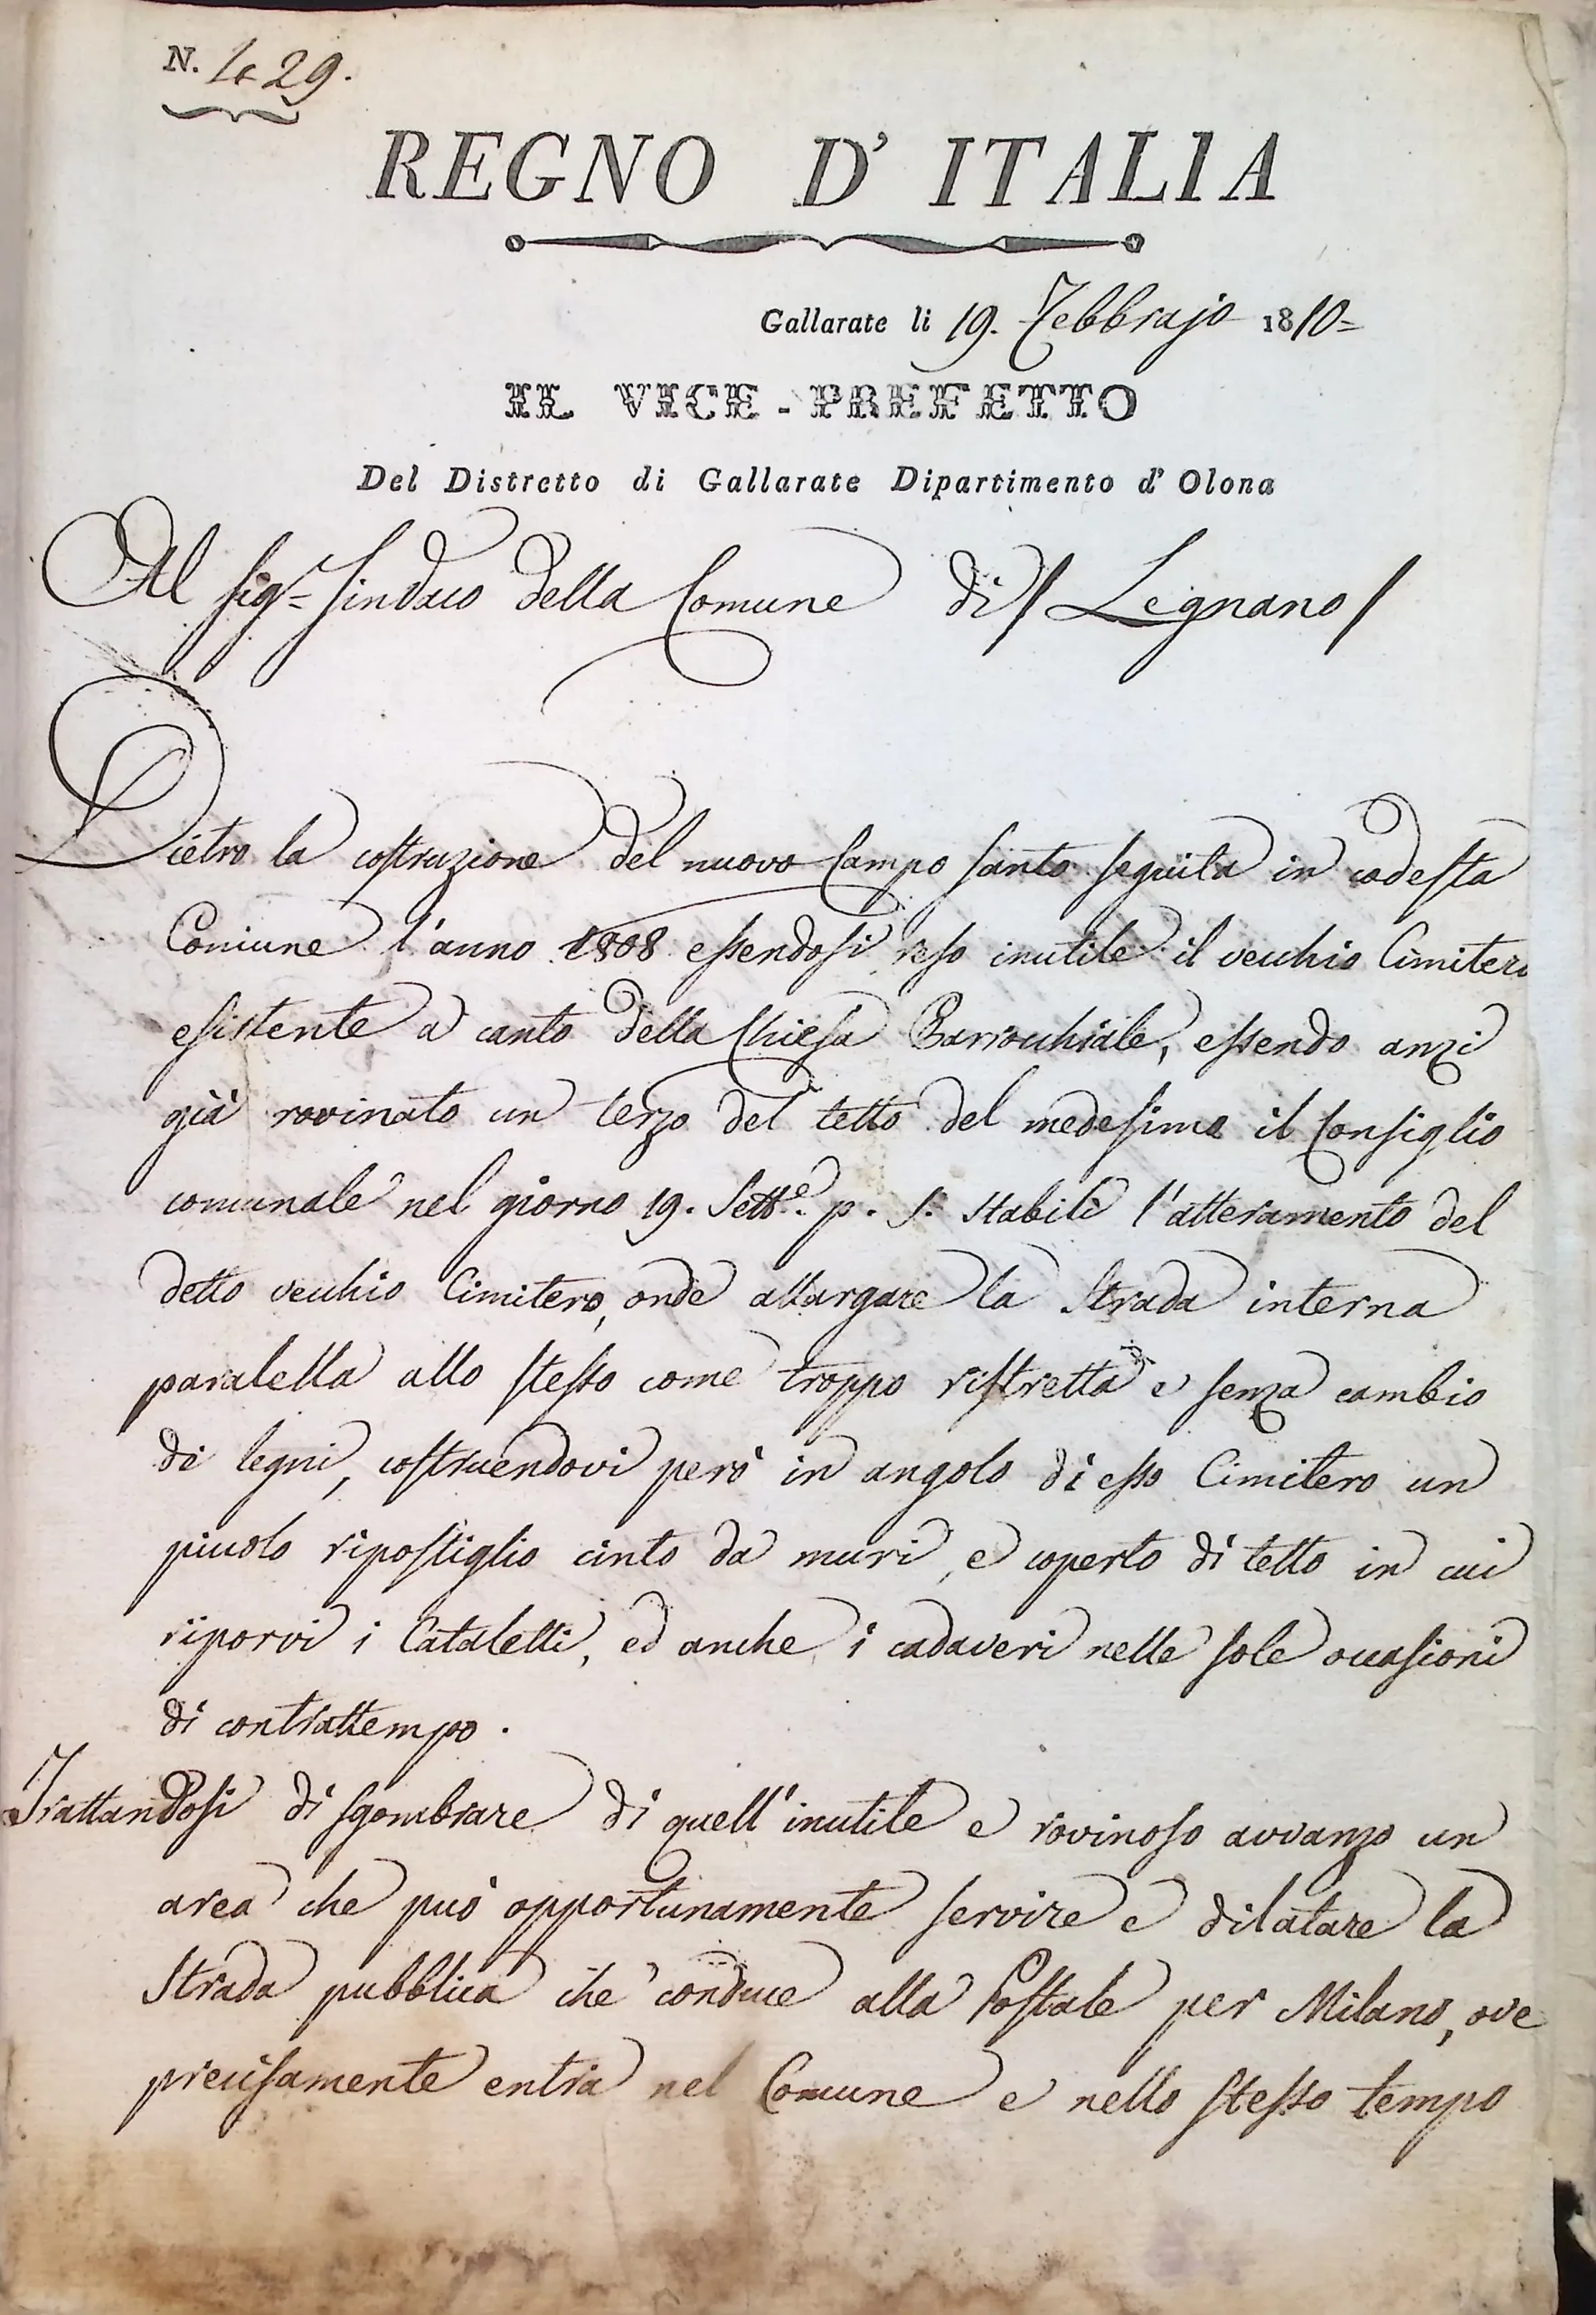 N. 1429.
REGNO D' ITALIA
Gallarate li 19. Febbrajo 1810=
IL VICE-PREFETTO
Del Distretto di Gallarate Dipartimento d' Olona
Al Sig.r Sindaco della Comune di / Legnano /
Dietro la costruzione del nuovo Campo Santo seguita in codesta
Comune l'anno 1808 essendosi reso inutile il vecchio Cimitero
esistente a canto della Chiesa Parrocchiale, essendo anzi
già rovinato un terzo del tetto del medesimo il Consiglio
comunale nel giorno 19. Sett.e p. s. stabilì l'atteramento del
detto vecchio Cimitero, onde allargare la Strada interna
paralella allo stesso come troppo ristretta e senza cambio
di legni, costruendovi però in angolo di esso Cimitero un
piccolo ripostiglio cinto da muri, e coperto di tetto in cui
riporvi i Cataletti, ed anche i cadaveri nelle sole occasioni
di contrattempo.
Trattandosi di sgombrare di quell'inutile e rovinoso avvanzo un
area che può opportunamente servire e dilatare la
Strada pubblica che conduce alla Postale per Milano, ove
precisamente entra nel Comune e nello stesso tempo